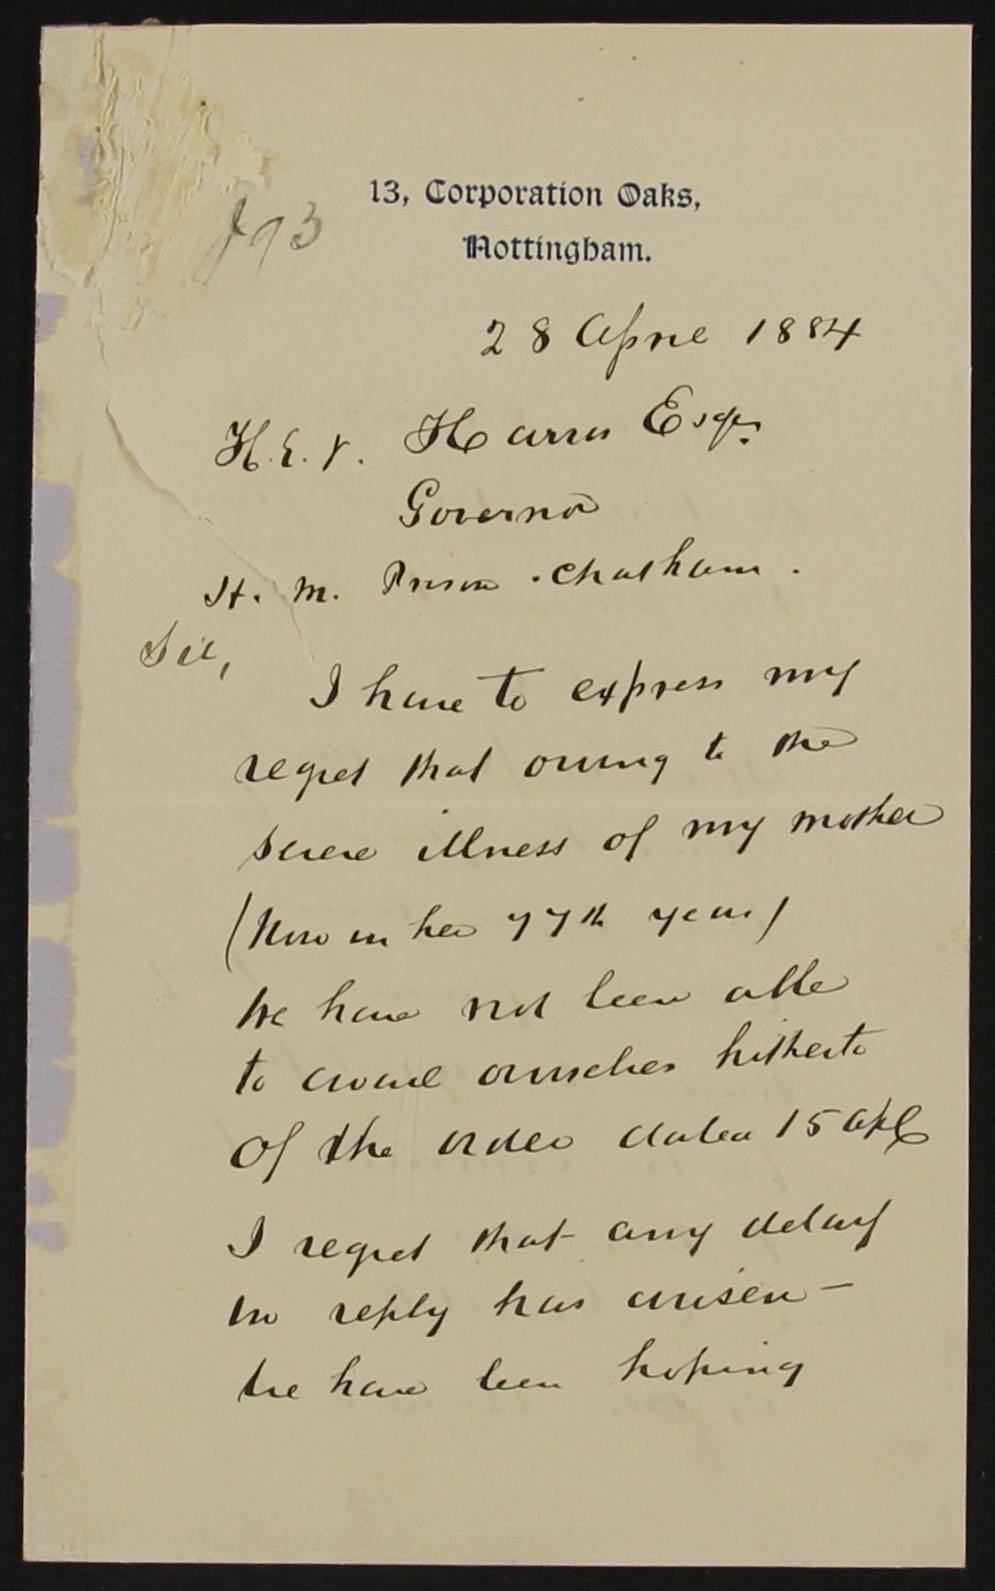 13, Corporation Oaks,
Nottingham.
J93
28 April 1884
H. E. V. Harris Esqr.
Governor
H. M. Prison. Chatham.
Sir,
I have to express my
regret that owing to the
severe illness of my mother
(Now in her 77th year)
We have not been able
to avail ourselves hitherto
of the order dated 15 Apl
I regret that any delay
in reply has arisen -
We have been hoping